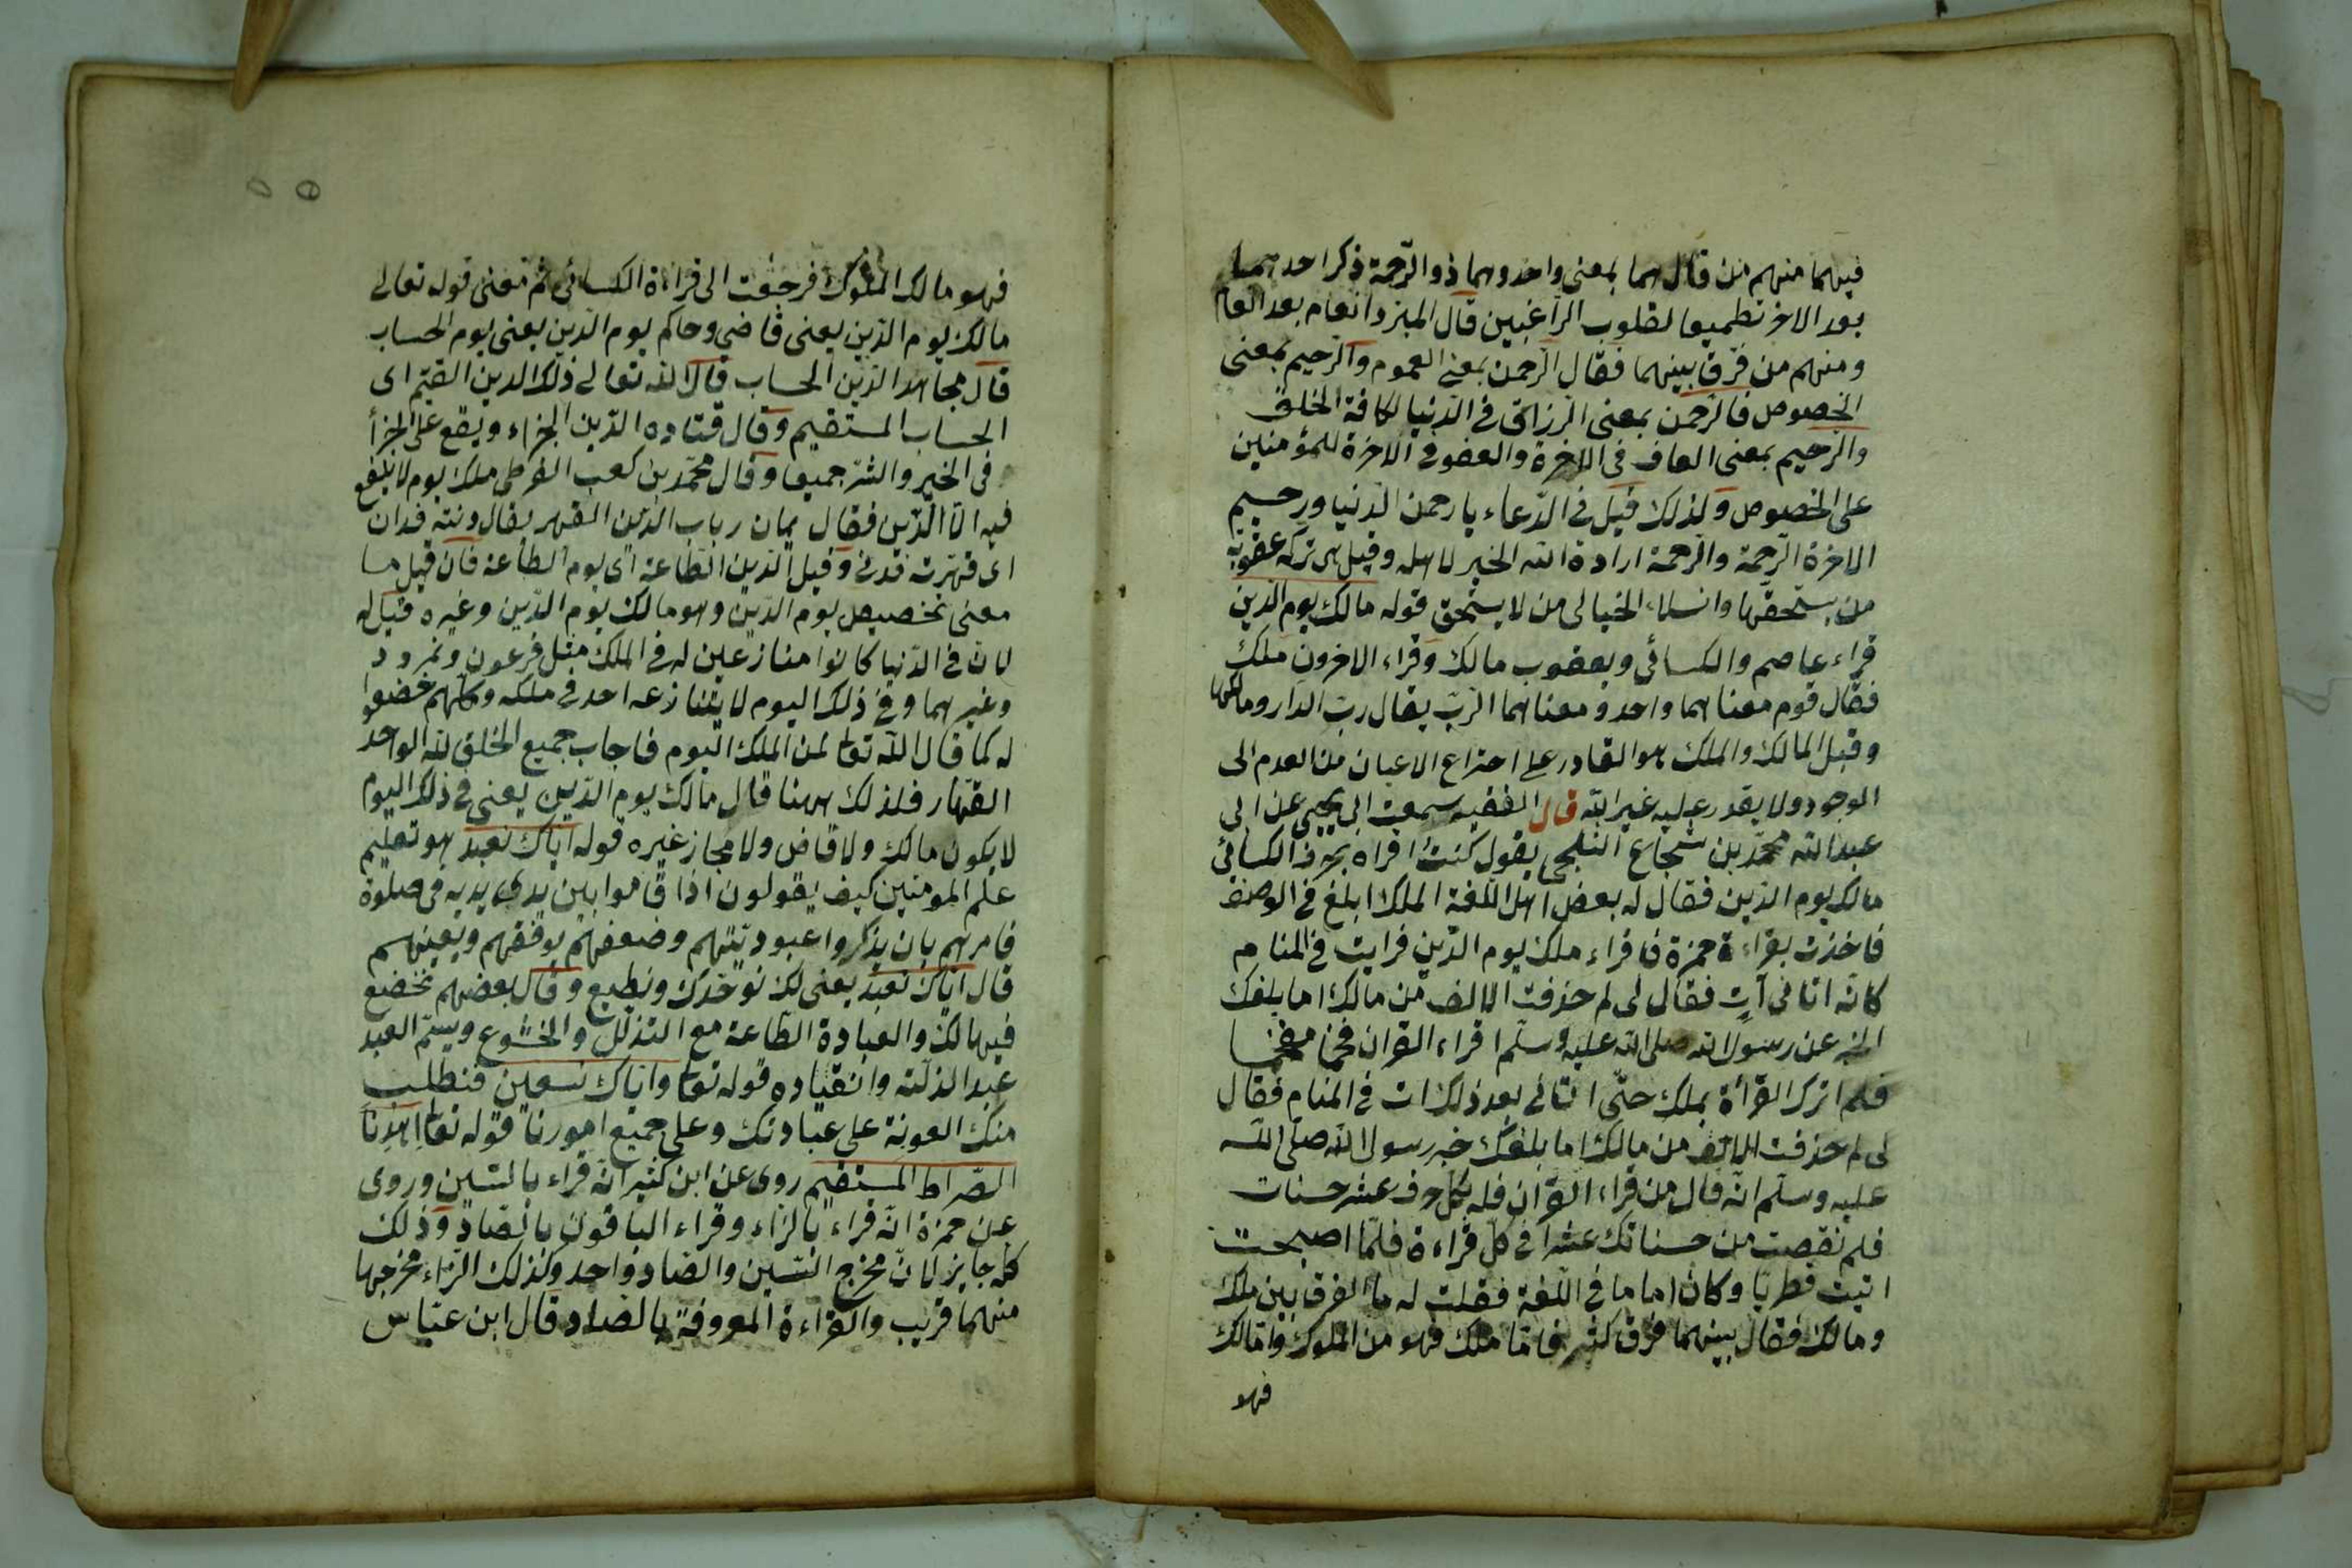 فيهما منهم من قال هما بمعنى واحد وهما ذو الرّحمة ذكر احدهما
بعد الاخر تطميعا لقلوب الراغبين قال المبرد انعام بعد انعام
ومنهم من فرّق بينهما فقال الرّحمن بمعنى العموم والرّحيم بمعنى
الخصوص فالرّحمن بمعنى الرزاق فى الدّنيا لكافة الخلق
والرّحيم بمعنى العافى فى الاخرة والعفو فى الاخرة للمؤمنين
على الخصوص ولذلك قيل فى الدّعاء يا رحمن الدّنيا ورحيم
الاخرة الرّحمة والرّحمة ارادة الله الخير لاهله وقيل هى تركه عقوبة
من يستحقها الى من لا يستحق قوله مالك يوم الدّين
قراء عاصم والكسائى ويعقوب مالك وقراء الاخرون ملك
فقال قوم معناهما واحد ومعناهما الرّبّ يقال ربّ الدّار ومالكها
وقيل المالك والملك هو القادر على اختراع الاعيان من العدم الى
الوجود ولا يقدر عليه غير الله قال الفقيه سمعت ابى يحيى عن ابى
عبد الله محمّد بن شجاع الثلجى يقول كنت اقراء بحرف الكسائي
مالك يوم الدّين فقال له بعض اهل اللّغة الملك ابلغ فى الوصف
فاخذت بقراءة حمزة فاقراء ملك يوم الدّين فرايت فى المنام
كانّه اتانى آت فقال لى لم حذفت الالف من مالك اما بلغك
الخبر عن رسول الله صلى الله عليه وسلّم اقراء القران فخما مفخما
فلم اترك القرأة بملك حتّى اتانى بعد ذلك ات فى المنام فقال
لى لم حذفت الالف من مالك اما بلغك خبر رسول الله صلّى الله
عليه وسلّم انّه قال من قراء القرآن فله بكلّ حرف عشر حسنات
فلم نقصت من حسناتك عشرا فى كلّ قراءة فلمّا اصبحت
اتيت قطربا وكان اماما فى اللّغة فقلت له ما الفرق بين ملك
ومالك فقال بينهما فرق كثير فامّا ملك فهو من الملوك وامّا مالك
فهو
فهو مالك الملوك فرجعت الى قراءة الكسائى ثم معنى قوله تعالى
مالك يوم الدّين يعنى قاضى وحاكم يوم الدّين يعنى يوم الحساب
قال مجاهد الدّين الحساب قال الله تعالى ذلك الدين القيّم اى
الحساب المستقيم وقال قتاده الدّين الجزاء ويقع على الجزأ
فى الخير والشرّ جميعا وقال محمّد بن كعب القرظى ملك يوم لا ينفع
فيه الّا الدّين فقال يمان رباب الدّين القهر يقال دنته فدان
اى قهرته فذلّ وقيل الدّين الطّاعة اى يوم الطّاعة فان قيل ما
معنى تخصيص يوم الدّين وهو مالك يوم الدّين وغيره قيل له
لان فى الدّنيا كانوا منازعين له فى الملك مثل فرعون ونمرود
وغيرهما وفى ذلك اليوم لا يتنازعه احد فى ملكه وكلّهم خضعوا
له كما قال الله تعا لمن الملك اليوم فاجاب جميع الخلق لله الواحد
القهّار فلذلك ههنا قال مالك يوم الدّين يعنى فى ذلك اليوم
لا يكون مالك ولا قاض ولا مجاز غيره قوله ايّاك نعبد هو تعليم
علّم المومنين كيف يقولون اذا قاموا بين يدى يديه فى صلوة
فامرهم بان يذكروا عبوديّتهم وضعفهم يوفّقهم ويعينهم
قال ايّاك نعبد يعنى لك نوحّدك ونطيع وقال بعضهم نخضع
فيها لك والعبادة الطّاعة مع التذلّل والخشوع ويسمّ العبد
عبدا لذلّته وانقياده قوله تعا وايّاك نستعين فنطلب
منك العونة على عبادتك وعلى جميع امورنا قوله تعا اهدنا
الصّراط المستقيم روى عن ابن كثير انّه قراء بالسّين وروى
عن حمزة انّه قراء بالزاء وقراء الباقون بالصّاد وذلك
كلّه جايز لانّ مخرج السّين والصّاد واحد وكذلك الزّاء مخرجها
منهما قريب والقراءة المعروفة بالصاد قال ابن عبّاس